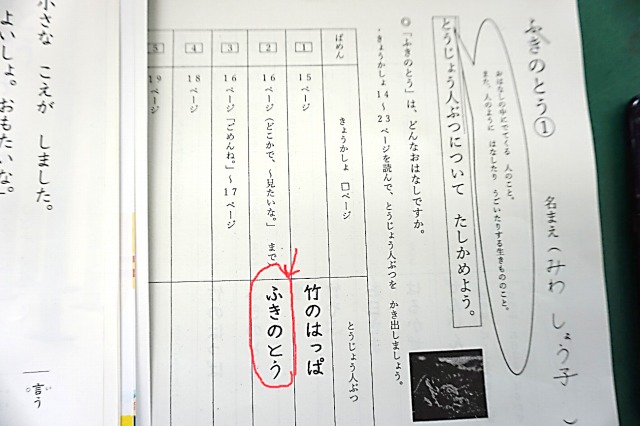 ふきのとう①
名まえ(みわ しょう子 )
おはなしの中にでてくる 人のこと。
また、人のように はなしたり うごいたりする生きもののこと。
とうじょう人ぶつについて たしかめよう。
◎「ふきのとう」は、どんなおはなしですか。
・きょうかしょ 14～23ページを読んで、とうじょう人ぶつを かき出しましょう。
ばめん
きょうかしょ □ページ
とうじょう人ぶつ
1
15ページ
竹のはっぱ
2
16ページ(どこかで、～見たいな。」まで
ふきのとう
3
16ページ「ごめんね。」～17ページ
4
18ページ
5
19ページ
小さな こえが しました。
よいしょ。おもたいな。」
言う